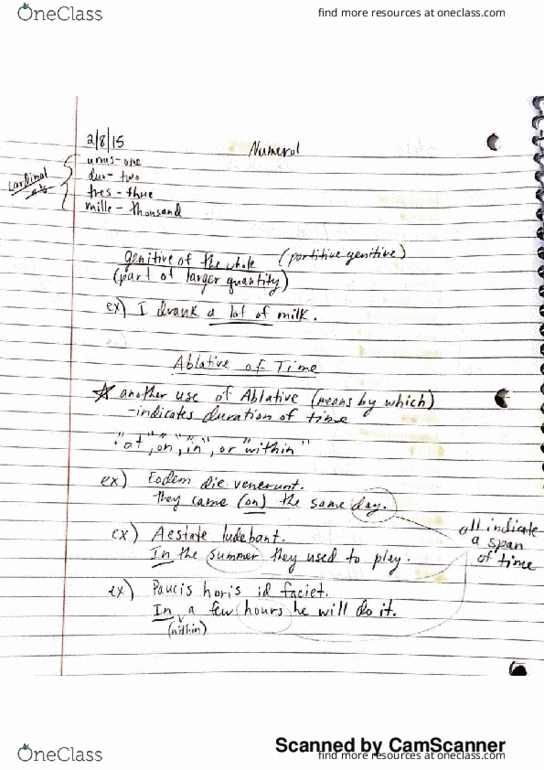 OneClass
find more resources at oneclass.com
2/8/15
Numeral
Cardinal
unus-one
duo- two
tres - three
mille - thousand
genitive of the whole (partitive genitive)
(part of larger quantity)
ex) I drank a lot of milk.
Ablative of Time
☆ another use of Ablative (means by which)
-indicates duration of time
"at", "on", "in", or "within"
ex) Eodem die venerunt.
They came (on) the same day.
all indicate
a span
of time
ex) Aestate ludebant.
In the summer they used to play.
ex) Paucis horis id faciet.
In a few hours he will do it.
(within)
Scanned by CamScanner
OneClass
find more resources at oneclass.com